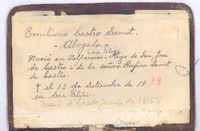 Emiliano Castro Sanit.
- Abogado -
Nació en Valparaíso - Hijo de Don José
de Castro - de la señora Regina Sanit
de Castro
† el 13 de Setiembre de 1879
en San Felice.
Nació el 6 de Junio de 1854